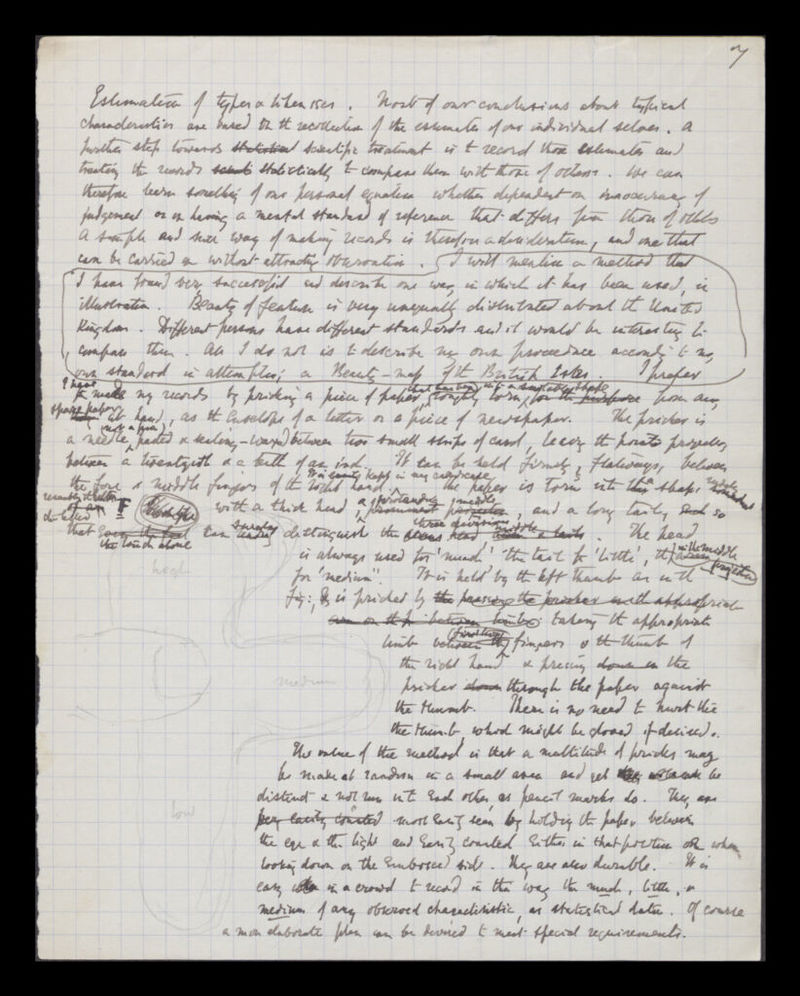 7
Estimation of types & likenesses. Most of our conclusions about typical
characteristics are based on the recollection of the estimates of our individual selves. A
further step towards statistical scientific treatment is to record those estimates and
treating the records statistically to compare them with those of others. We can
therefore learn something of our personal equation whether dependent on inaccuracy of
judgement or on having a mental standard of reference that differs from those of others
A simple and sure way of making records is therefore a desideratum, and one that
can be carried on without attracting observation. I will mention a method that
I have found very successful and describe one way in which it has been used, in
illustration. Beauty of feature is very unequally distributed about the United
Kingdom. Different persons have different standards and it would be interesting to
compare them. All I do now is to describe my own procedure according to my
own standard in attempting a Beauty-map of the British Isles. I prefer
to make my records by pricking a piece of paper roughly torn for the purpose from any
spare paper at hand, as the Envelope of a letter or a piece of newspaper. The pricker is
a needle passed & sealing-waxed between two small strips of card, leaving the point projecting
between a twentieth & a tenth of an inch. It can be held firmly, flatways, between
the fore & middle fingers of the right hand. The paper is torn into the shape
with a thick head, a prominent middle, and a long tail, so
that the touch alone can distinguish the three divisions. The head
is always used for 'much' the tail for 'little', the
for "medium". It is held by the left thumb as in the
fig:, & is pricked by the passing the pricker with appropriate
taking the appropriate
limb between the fingers & the thumb of
the right hand & pressing down on the
pricker down through the paper against
the thumb. There is no need to hurt the
the thumb, which might be gloved if desired.
The value of the method is that a multitude of pricks may
be made at random in a small area and yet be
distinct & not run into each other as pencil marks do. They are
very easily counted most easily seen by holding the paper between
the eye & the light and easily counted either in that position or when
looking down on the embossed side. They are also durable. It is
easy in a crowd to record in this way the much, little, or
medium of any observed characteristic, as statistical data. Of course
a more elaborate plan can be devised to meet special requirements.
high
medium
low